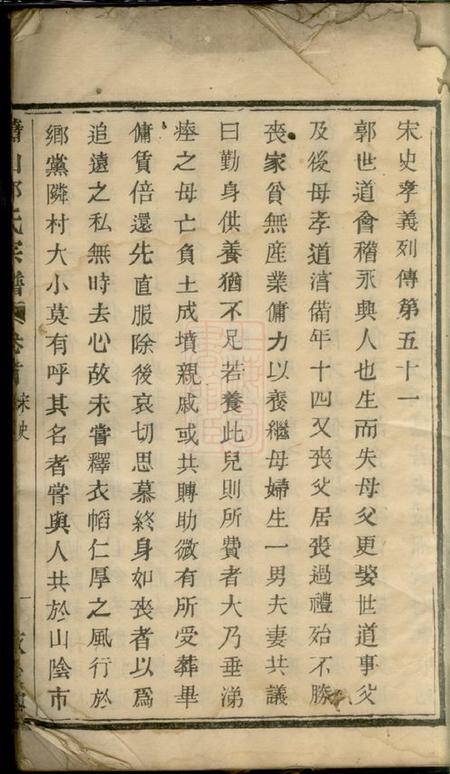 宋史孝義列傳第五十一
郭世道會稽永興人也生而失母父更娶世道事父
及後母孝道淳備年十四又喪父居喪過禮殆不勝
喪家貧無産業傭力以養繼母婦生一男夫妻共議
曰勤身供養猶不足若養此兒則所費者大乃垂涕
瘞之母亡負土成墳親戚或共賻助微有所受葬畢
傭賃倍還先直服除後哀切思慕終身如喪者以爲
追遠之私無時去心故未嘗釋衣幍仁厚之風行於
鄉黨隣村大小莫有呼其名者嘗與人共於山陰市
蕭山郭氏宗譜 卷首 宋史 一